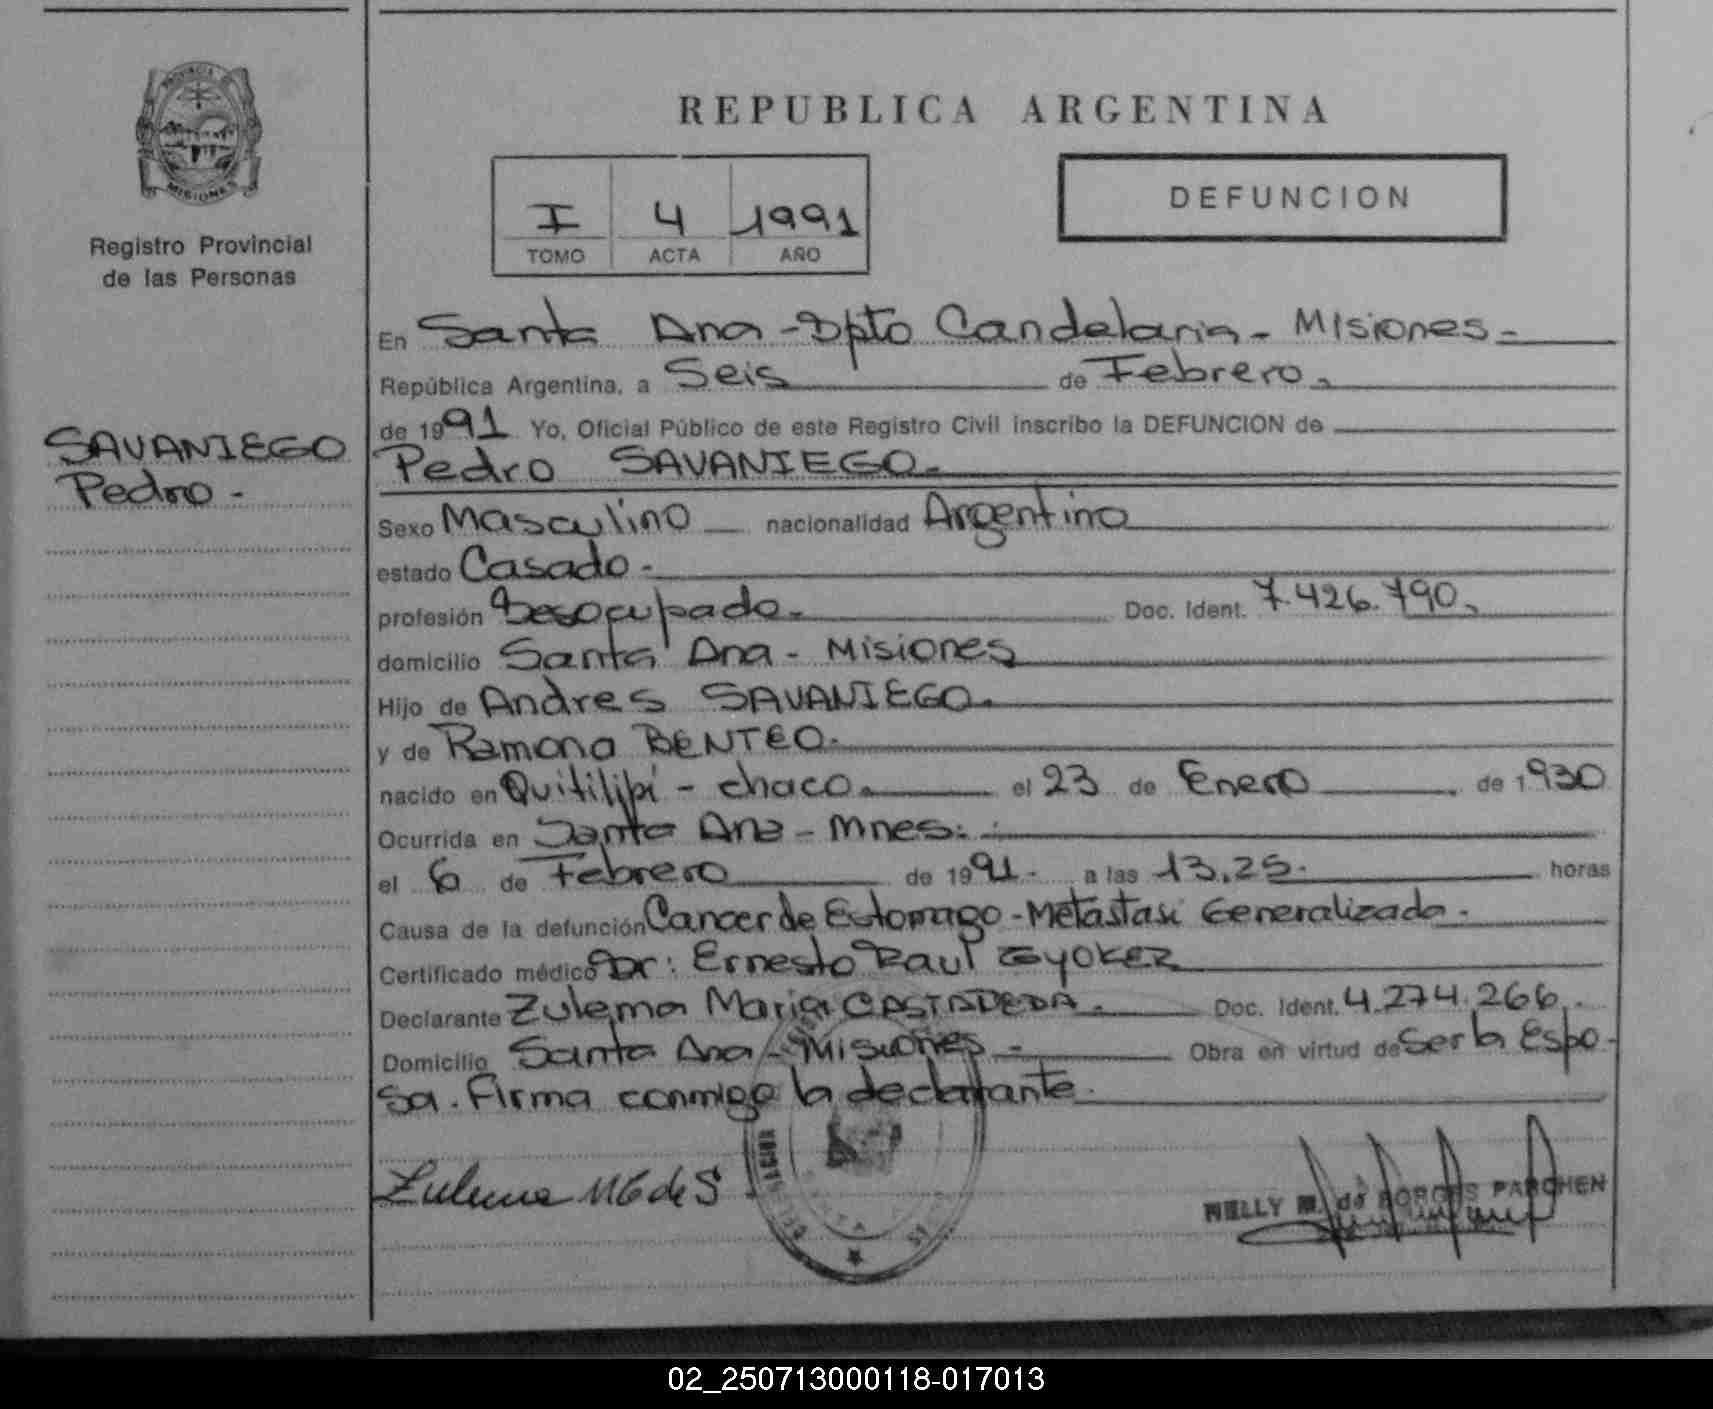 PROVINCIA
MISIONES
Registro Provincial
de las Personas
SAVANIEGO
Pedro -
REPUBLICA ARGENTINA
I 4 1991
TOMO ACTA AÑO
DEFUNCION
En Santa Ana - Dpto Candelaria - Misiones -
República Argentina, a Seis de Febrero.
de 1991 Yo, Oficial Público de este Registro Civil inscribo la DEFUNCION de
Pedro SAVANIEGO.
Sexo Masculino nacionalidad Argentino
estado Casado -
profesión Desocupado. Doc. Ident. 7.426.790.
domicilio Santa Ana - Misiones
Hijo de Andres SAVANIEGO.
y de Ramona BENTEO.
nacido en Quitilipi - chaco. el 23 de Enero de 1930
Ocurrida en Santa Ana - Mnes.
el 6 de Febrero de 1991. a las 13,25. horas
Causa de la defunción Cancer de Estomago - Metástasi Generalizada.
Certificado médico Dr: Ernesto Raul GYOKER
Declarante Zulema Maria Doc. Ident. 4.274.266.
Domicilio Santa Ana - Misiones - Obra en virtud de Ser la Espo-
sa. Firma conmigo la declarante.
Zulema
NELLY M. de BORGES PARCHEN
02_250713000118-017013